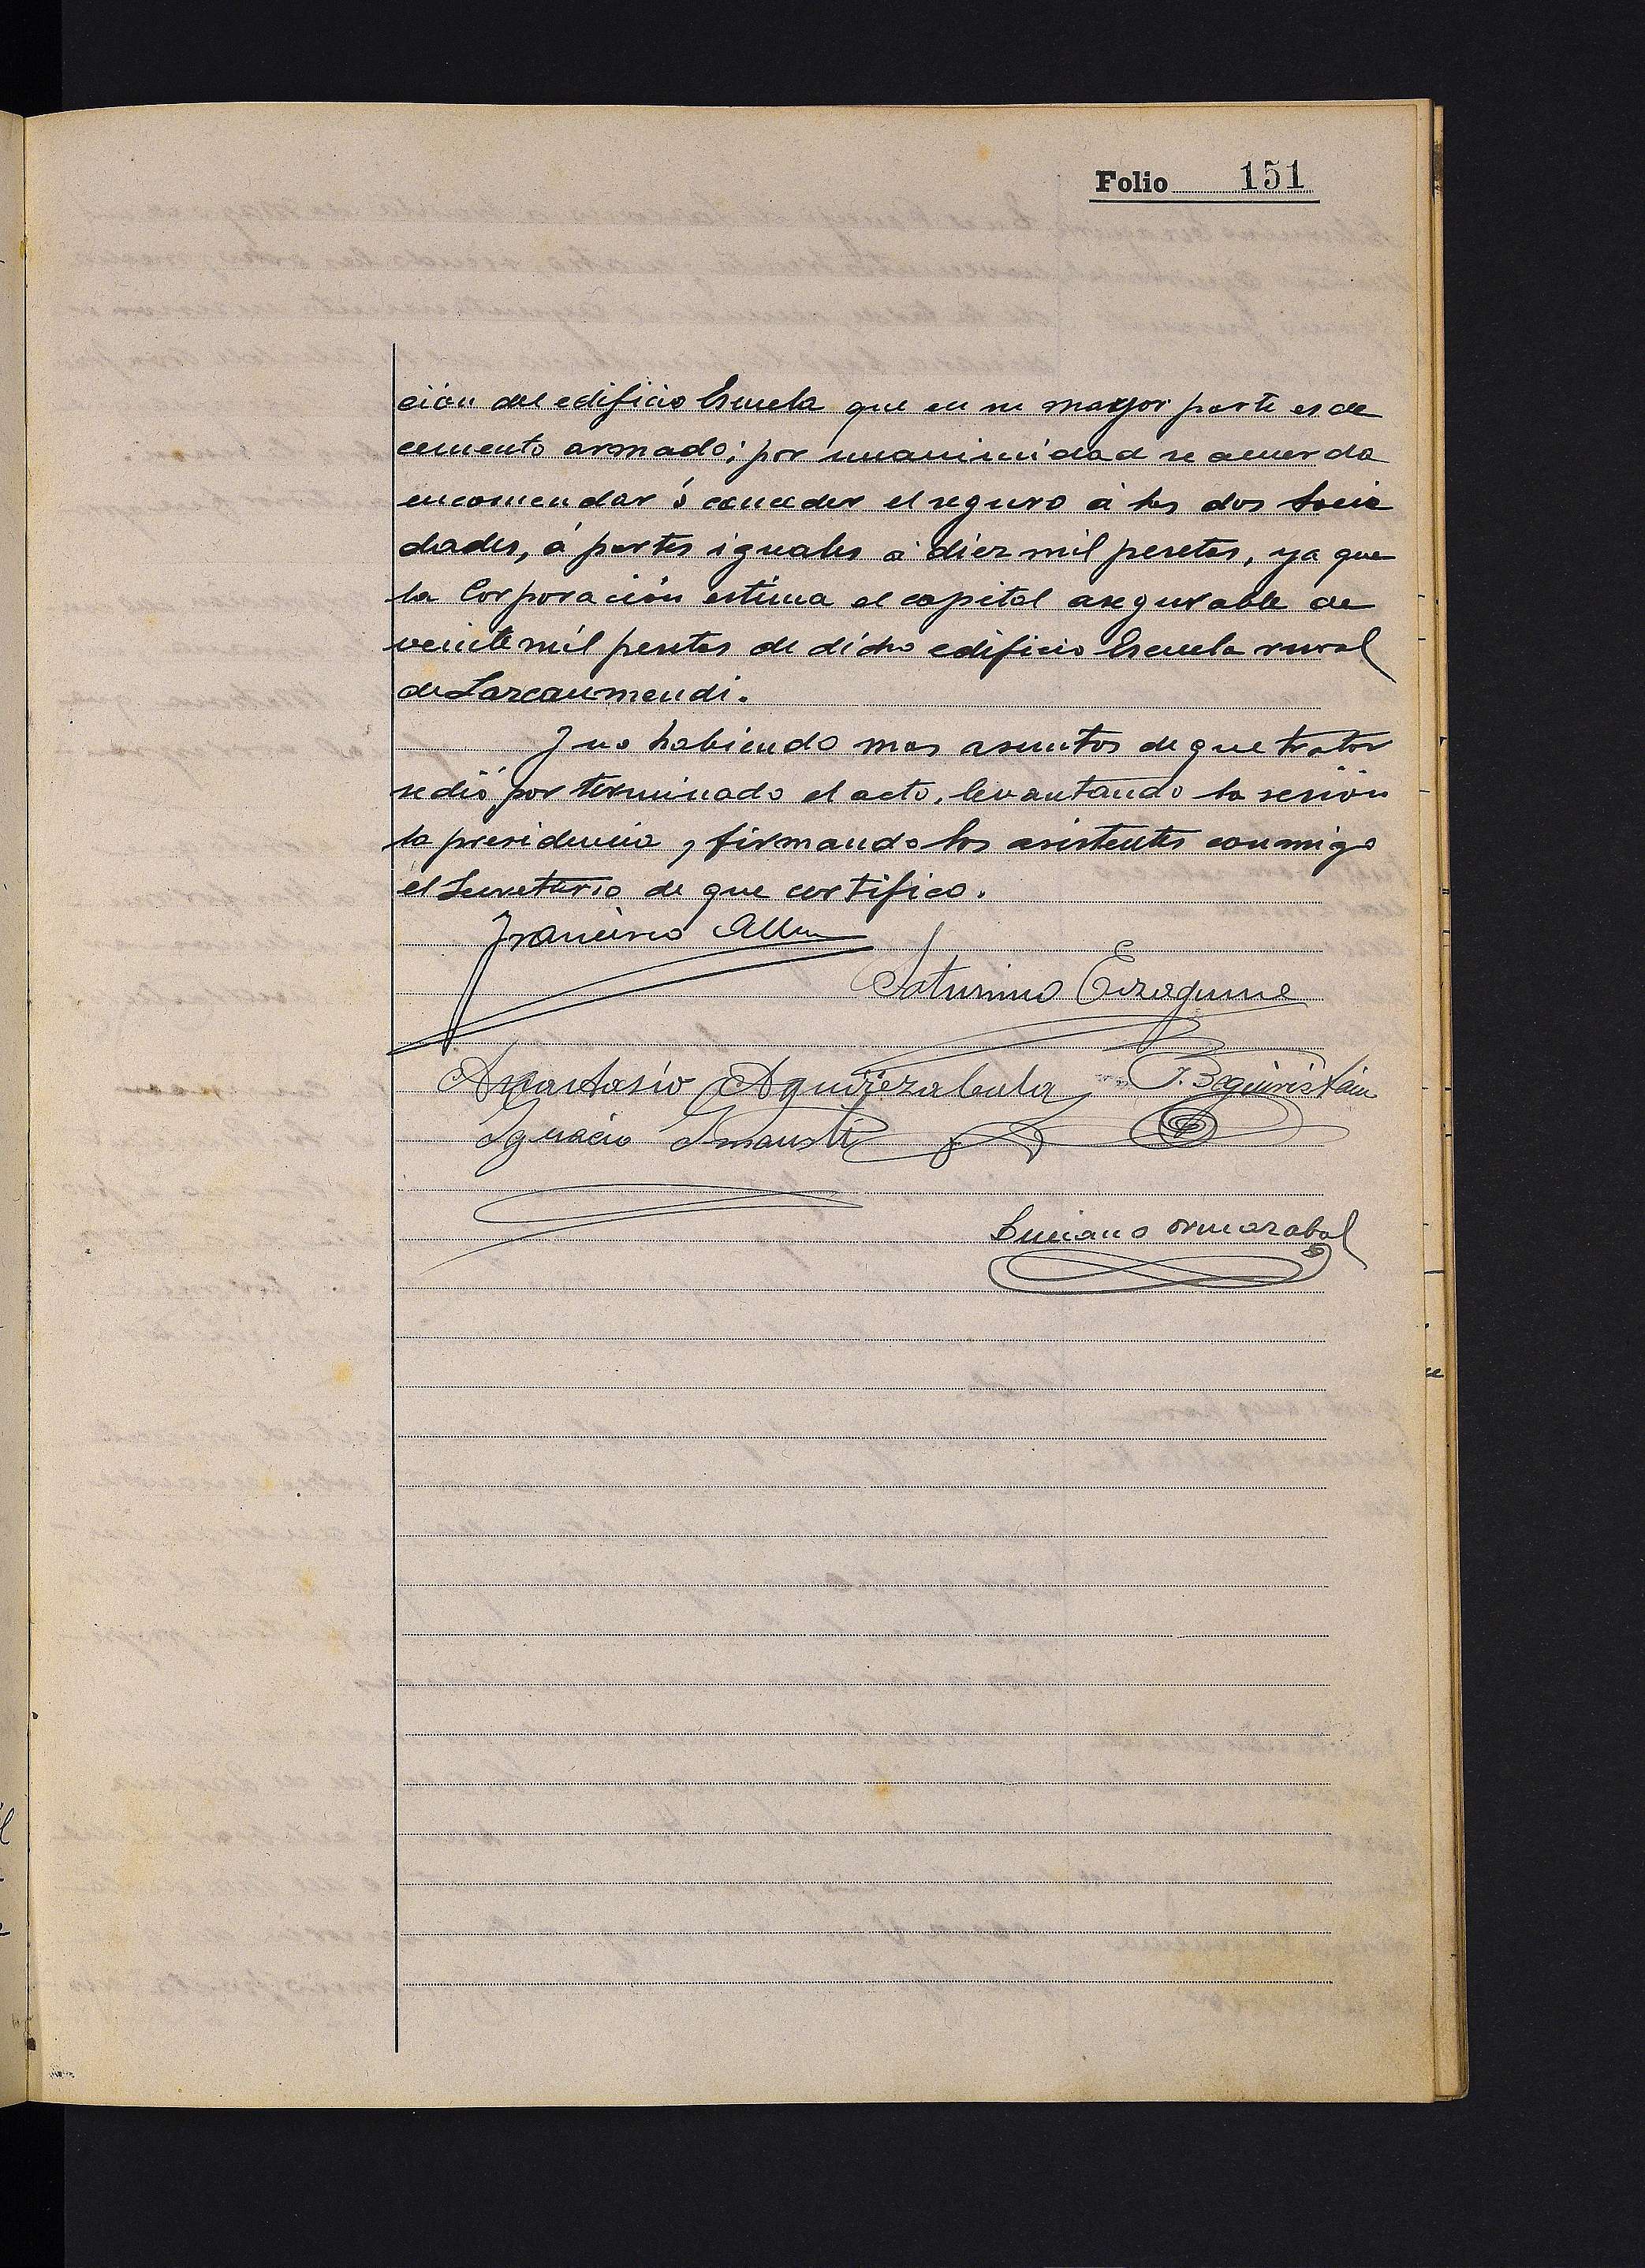 Folio 151
ción del edificio Escuela que en su mayor parte es de
cemento armado; por unanimidad se acuerda
encomendar ó conceder el seguro á las dos Socie
dades, á partes iguales á diez mil pesetas, ya que
la Corporación estima el capital asegurable de
veinte mil pesetas de dicho edificio Escuela rural
de Lazcanmendi.
Y no habiendo mas asuntos de que tratar
se dió por terminado el acto, levantando la sesión
la presidencia y firmando los asistentes conmigo
el Secretario de que certifico.
Francisco
Saturnino Eizaguirre
Anastasio Aguirrezabala J. Beguiristain
Ignacio Imausti
Luciano Ormazabal